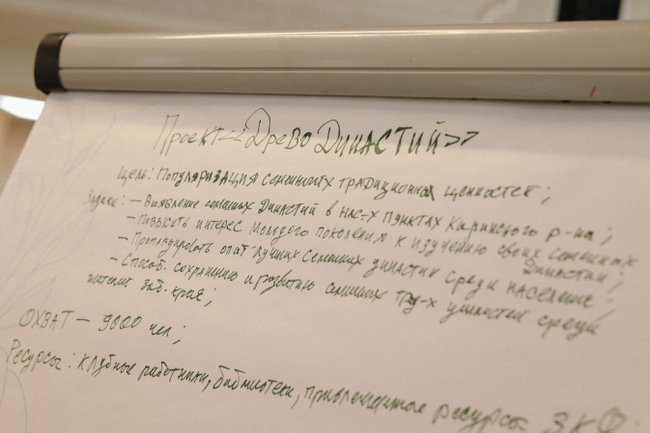 Проект «Древо Династий»
Цель: Популяризация семейных традиционных ценностей;
Задачи: – Выявление семейных Династий в нас-х пунктах Каринского р-на;
– Повысить интерес Молодого поколения к изучению своих семейных Династий;
– Пропагандировать опыт лучших Семейных династий среди населения;
– Способ. сохранению и развитию семейных тр-х ценностей среди
жителей Заб. края;
ОХВАТ – 9000 чел;
Ресурсы: клубные работники, библиотеки, привлеченные ресурсы ЗКФ